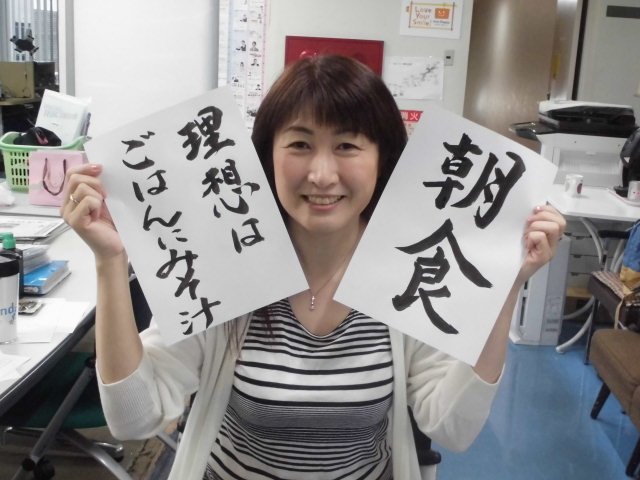 理想は
ごはんにみそ汁
朝食
Love
Your
Smile